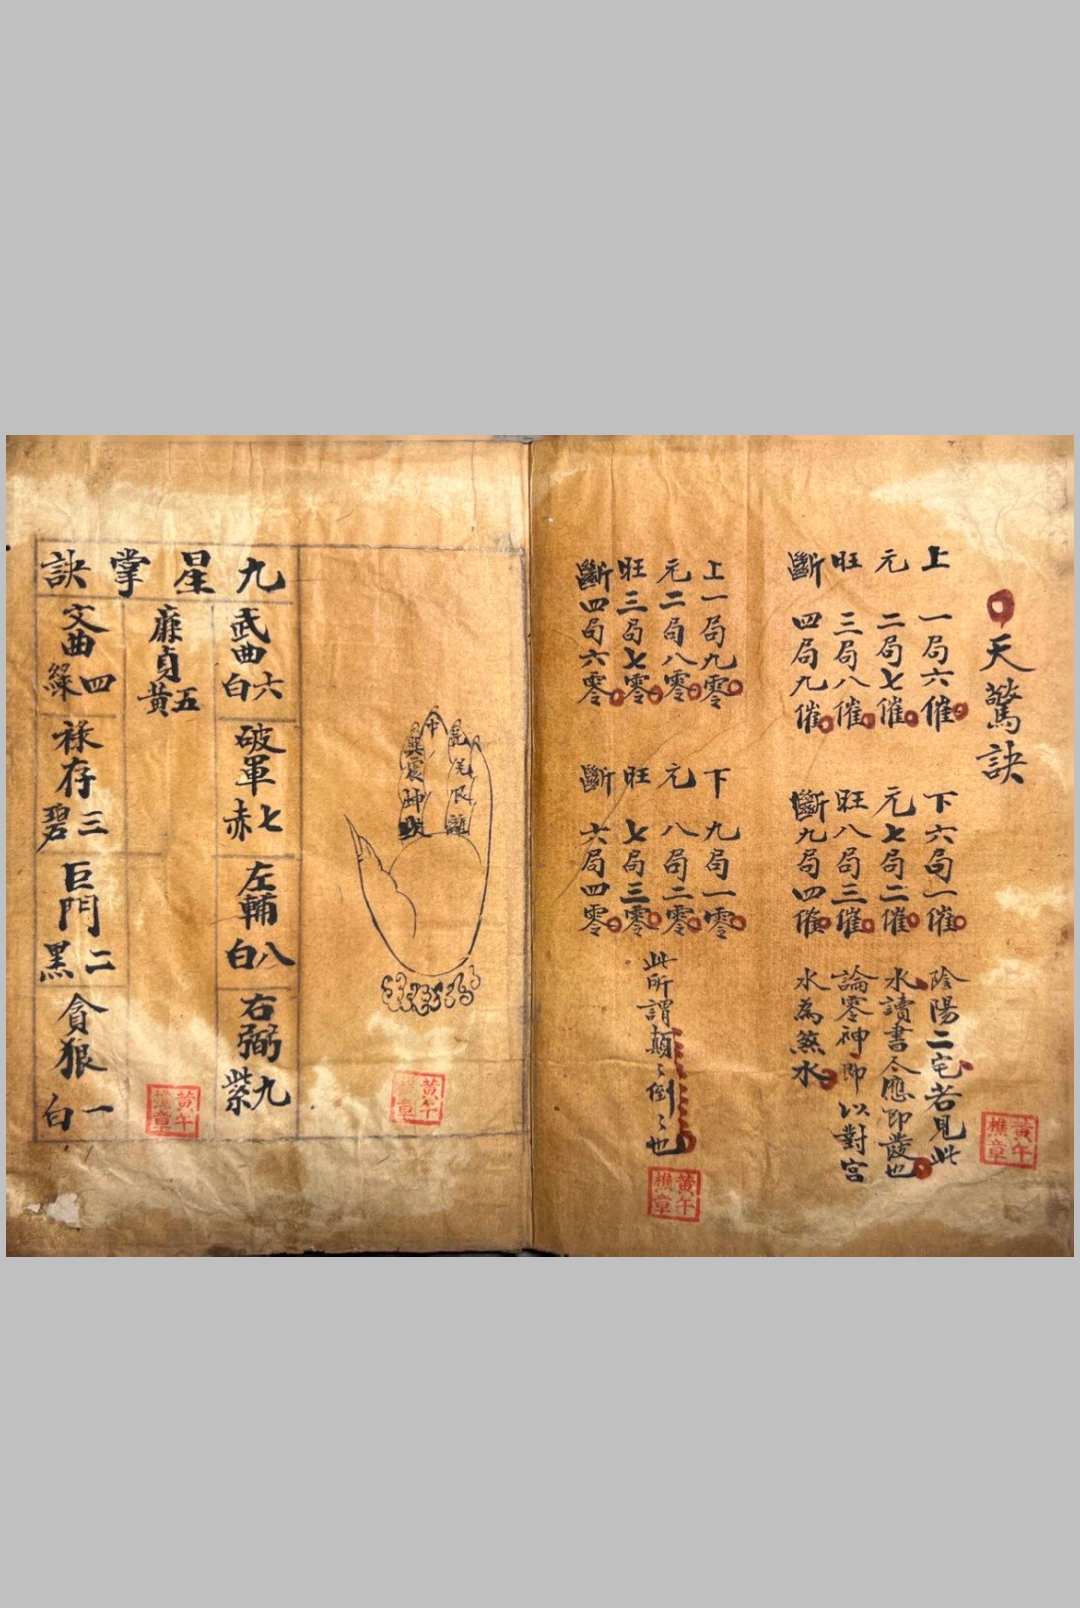 天驚訣
上元旺斷
一局六催
二局七催
三局八催
四局九催
下六局一催
元七局二催
旺八局三催
斷九局四催
陰陽二宅若見此
水讀書人應即發也
論零神即以對宮
水為煞水
上一局九零
元二局八零
旺三局七零
斷四局六零
下九局一零
元八局二零
旺七局三零
斷六局四零
此所謂顛〻倒〻也
黃午
樵章
黃午
樵章
九星掌訣
武曲
六白
破軍
七赤
左輔
八白
右弼
九紫
廉貞
五黃
文曲
四綠
祿存
三碧
巨門
二黑
貪狼
一白
中
乾兌艮離
巽震坤坎
黃午
樵章
黃午
樵章